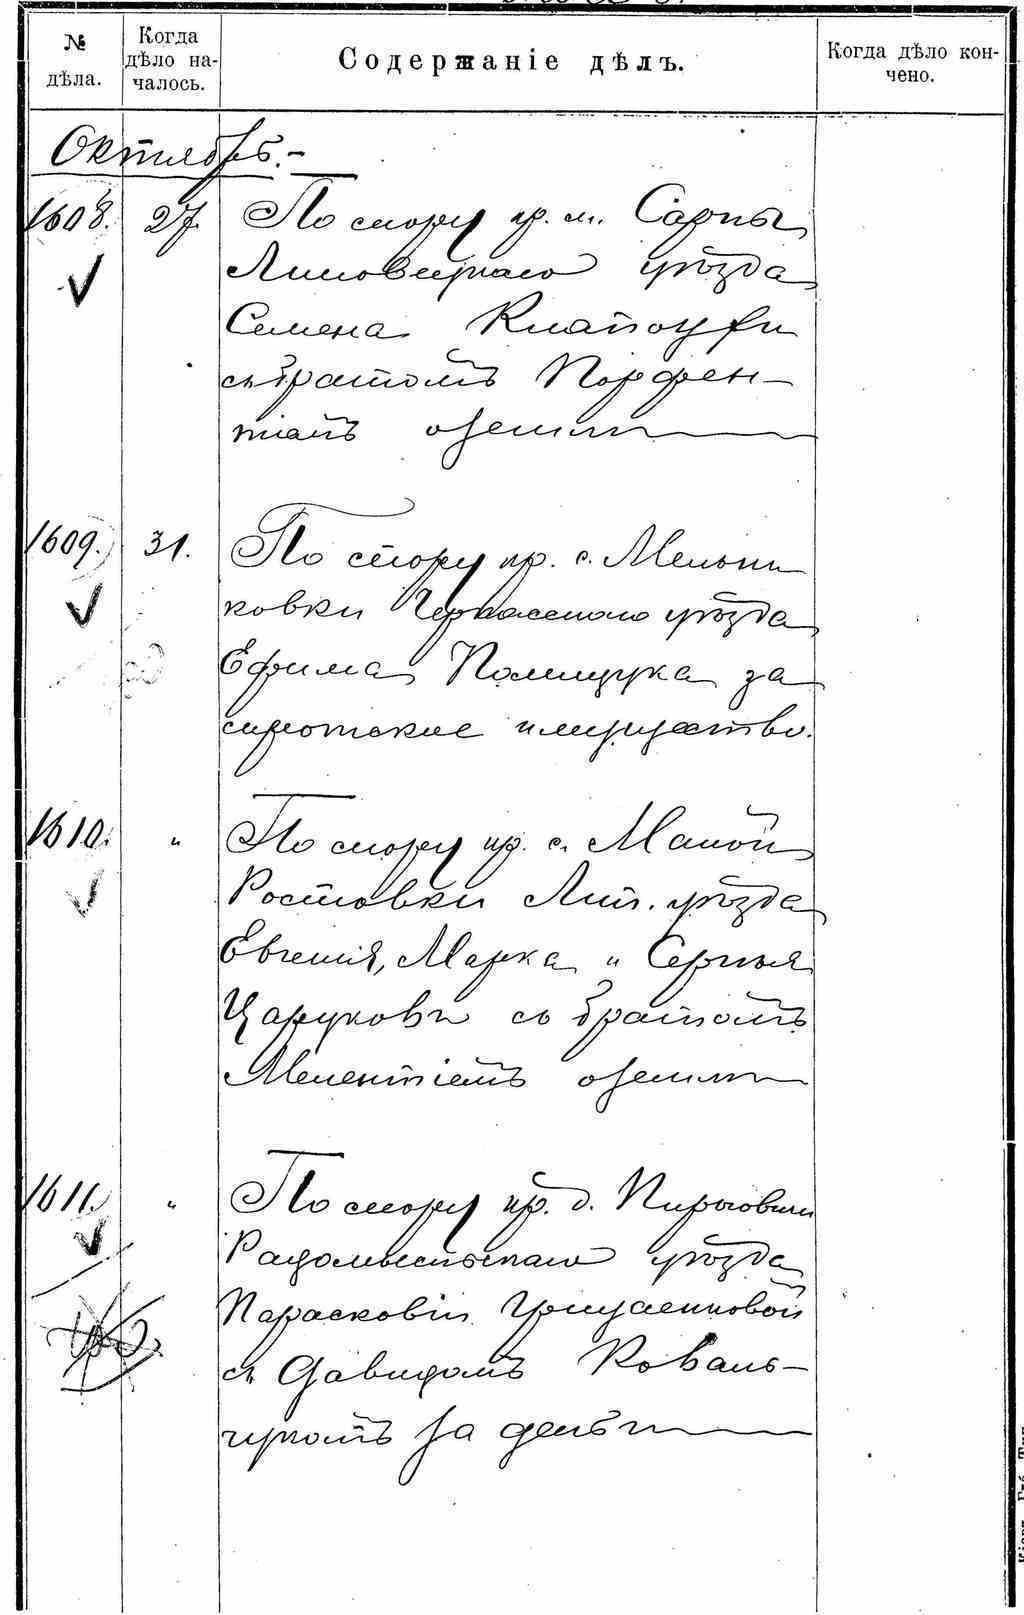 № дѣла.
Когда дѣло на-
чалось.
Содержаніе дѣлъ.
Когда дѣло кон-
чено.
Октябрь.-
1608. 27. По спору кр. м. Сарны
Липовецкаго уѣзда
Семена
съ братомъ Порфен-
тіемъ о земли
1609. 31. По спору кр. с. Мельни
ковки Черкасскаго уѣзда
Ефима Полищука за
сиротское имущество.
1610. " По спору кр. с. Малой
Ростовки Лип. уѣзда
Евгенія, Марка и Сергѣя
Царуковы съ братомъ
Мелентіемъ о земли
1611. " По спору кр. д. Пироговки
Радомысльскаго уѣзда
Парасковіи Грицаенковой
съ Давидомъ Коваль-
чукомъ за деньги